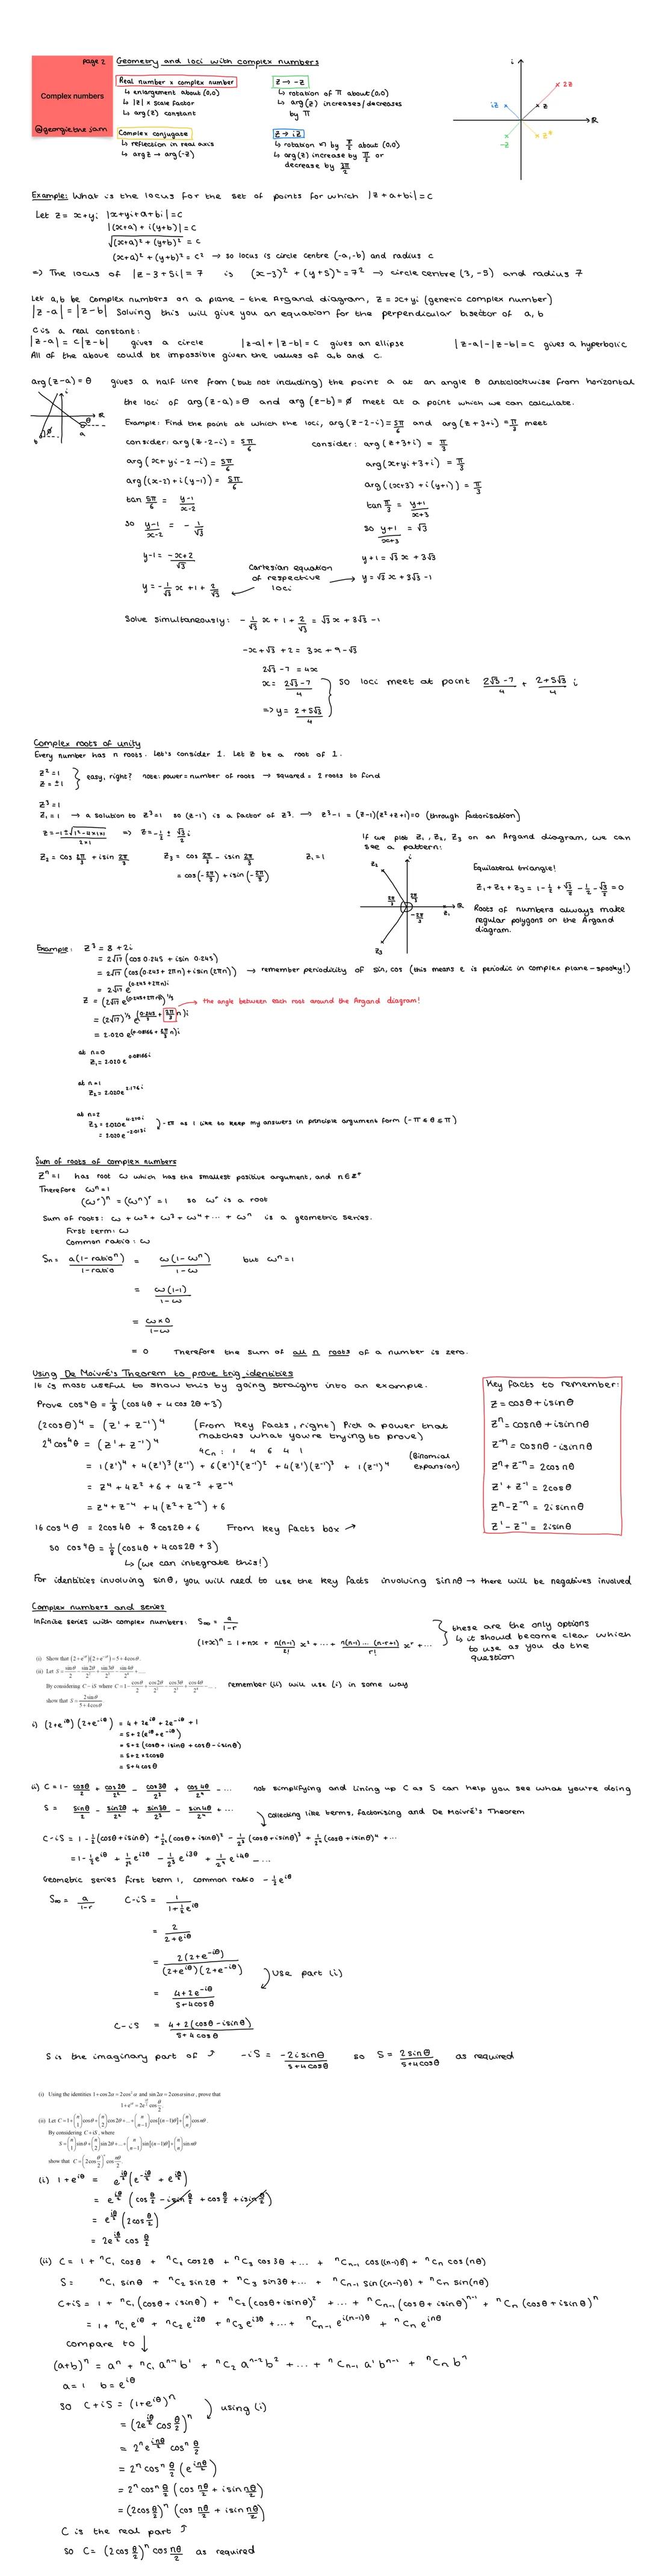 page 2
Complex numbers
@georgie the jam
Geometry and loci with complex numbers
Real number x complex number
↳ enlargement about (0,0)
↳ |z| x scale factor
↳ arg(z) constant
z → -z
↳ rotation of π about (0,0)
↳ arg(z) increases/decreases
by π
Complex conjugate
↳ reflection in real axis
↳ argz → arg(-z)
z → iz
↳ rotation by π/2 about (0,0)
↳ arg(z) increase by π/2 or
decrease by 3π/2
i
2z
iz
z
R
-z
z*
Example: What is the locus for the set of points for which |z+a+bi|=c
Let z = x+yi |x+yi+a+bi|=c
|(x+a)+i(y+b)|=c
√((x+a)²+(y+b)²) = c
(x+a)²+(y+b)² = c² → so locus is circle centre (-a,-b) and radius c
=> The locus of |z-3+5i|=7 is (x-3)²+(y+5)²=7² → circle centre (3,-5) and radius 7
Let a,b be complex numbers on a plane - the Argand diagram, z=x+yi (generic complex number)
|z-a|=|z-b| Solving this will give you an equation for the perpendicular bisector of a,b
C is a real constant:
|z-a|=c|z-b| gives a circle |z-a|+|z-b|=c gives an ellipse |z-a|-|z-b|=c gives a hyperbolic
All of the above could be impossible given the values of a,b and c.
arg(z-a)=θ gives a half line from (but not including) the point a at an angle θ anticlockwise from horizontal
the loci of arg(z-a)=θ and arg(z-b)=ø meet at a point which we can calculate.
i
R
ø
θ
b
a
Example: Find the point at which the loci, arg(z-2-i)=5π/6 and arg(z+3+i)=π/3 meet
consider: arg(z-2-i)=5π/6 consider: arg(z+3+i)=π/3
arg(x+yi-2-i)=5π/6 arg(x+yi+3+i)=π/3
arg((x-2)+i(y-1))=5π/6 arg((x+3)+i(y+1))=π/3
tan 5π/6 = (y-1)/(x-2) tan π/3 = (y+1)/(x+3)
so (y-1)/(x-2) = -1/√3 so (y+1)/(x+3) = √3
y-1 = (-x+2)/√3 y+1=√3x+3√3
Cartesian equation
of respective
loci
y=-1/√3 x+1+2/√3 y=√3x+3√3-1
Solve simultaneously: -1/√3 x+1+2/√3 = √3x+3√3-1
-x+√3+2 = 3x+9-√3
2√3-7=4x
x=(2√3-7)/4 so loci meet at point (2√3-7)/4 + (2+5√3)/4 i
=> y=(2+5√3)/4
Complex roots of unity
Every number has n roots. Let's consider 1. Let z be a root of 1.
z²=1
z=±1 easy, right? note: power=number of roots → squared = 2 roots to find
z³=1
z₁=1 → a solution to z³=1 so (z-1) is a factor of z³. → z³-1=(z-1)(z²+z+1)=0 (through factorisation)
z=(-1±√(1²-4x1x1))/(2x1) => z=-1/2 ± √3/2 i
z₂=cos 2π/3 + isin 2π/3 z₃=cos 2π/3 - isin 2π/3 z₁=1
=cos(-2π/3)+isin(-2π/3)
If we plot z₁,z₂,z₃ on an Argand diagram, we can
see a pattern:
i
z₂
2π/3
2π/3
-2π/3
R
z₁
z₃
Equilateral triangle!
z₁+z₂+z₃=1-1/2+√3/2-1/2-√3/2=0
Roots of numbers always make
regular polygons on the Argand
diagram.
Example: z³=8+2i
=2√17(cos 0.245+isin 0.245)
=2√17(cos(0.245+2πn)+isin(2πn)) → remember periodicity of sin, cos (this means e is periodic in complex plane-spooky!)
=2√17 e^(0.245+2πn)i
z=(2√17 e^(0.245+2πn)i)^1/3
=(2√17)^1/3 e^(0.245/3+2π/3 n)i → the angle between each root around the Argand diagram!
=2.020 e^(0.08166+2π/3 n)i
at n=0
z₁=2.020e^0.08166i
at n=1
z₂=2.020e^2.176i
at n=2
z₃=2.020e^4.270i
=2.020e^-2.013i -2π as I like to keep my answers in principle argument form (-π≤θ≤π)
Sum of roots of complex numbers
zⁿ=1 has root ω which has the smallest positive argument, and n∈Z⁺
Therefore ωⁿ=1
(ωʳ)ⁿ=(ωⁿ)ʳ=1 so ωʳ is a root
Sum of roots: ω+ω²+ω³+ω⁴+...+ωⁿ is a geometric series.
First term: ω
Common ratio: ω
Sn = a(1-ratioⁿ)/(1-ratio) = ω(1-ωⁿ)/(1-ω) but ωⁿ=1
= ω(1-1)/(1-ω)
= ωx0/(1-ω)
= 0 Therefore the sum of all n roots of a number is zero.
Using De Moivré's Theorem to prove trig identities
It is most useful to show this by going straight into an example.
Prove cos⁴θ=1/8(cos4θ+4cos2θ+3)
(2cosθ)⁴=(z¹+z⁻¹)⁴ (From key facts, right) Pick a power that
matches what you're trying to prove)
2⁴cos⁴θ=(z¹+z⁻¹)⁴ ⁴Cn: 1 4 6 4 1
=1(z¹)⁴+4(z¹)³(z⁻¹)+6(z¹)²(z⁻¹)²+4(z¹)(z⁻¹)³+1(z⁻¹)⁴ (Binomial
expansion)
=z⁴+4z²+6+4z⁻²+z⁻⁴
=z⁴+z⁻⁴+4(z²+z⁻²)+6
16cos⁴θ=2cos4θ+8cos2θ+6 From key facts box ↗
so cos⁴θ=1/8(cos4θ+4cos2θ+3)
↳ (we can integrate this!)
Key facts to remember:
z=cosθ+isinθ
zⁿ=cosnθ+isinnθ
z⁻ⁿ=cosnθ-isinnθ
zⁿ+z⁻ⁿ=2cosnθ
z¹+z⁻¹=2cosθ
zⁿ-z⁻ⁿ=2isinnθ
z¹-z⁻¹=2isinθ
For identities involving sinθ, you will need to use the key facts involving sinnθ → there will be negatives involved
Complex numbers and series
Infinite series with complex numbers: S∞=a/(1-r)
(1+x)ⁿ=1+nx+n(n-1)/2! x²+...+n(n-1)...(n-r+1)/r! xʳ+...
these are the only options
↳ it should become clear which
to use as you do the
question
(i) Show that (2+e^iθ)(2+e^-iθ)=5+4cosθ.
(ii) Let S=sinθ/2-sin2θ/2²+sin3θ/2³-sin4θ/2⁴+....
By considering C-iS where C=1-cosθ/2+cos2θ/2²-cos3θ/2³+cos4θ/2⁴-...,
show that S=2sinθ/(5+4cosθ).
remember (ii) will use (i) in some way
i) (2+e^iθ)(2+e^-iθ)=4+2e^iθ+2e^-iθ+1
=5+2(e^iθ+e^-iθ)
=5+2(cosθ+isinθ+cosθ-isinθ)
=5+2x2cosθ
=5+4cosθ
ii) C=1-cosθ/2+cos2θ/2²-cos3θ/2³+cos4θ/2⁴-... not simplifying and lining up C as S can help you see what you're doing
S= sinθ/2-sin2θ/2²+sin3θ/2³-sin4θ/2⁴+... collecting like terms, factorising and De Moivré's Theorem
C-iS=1-1/2(cosθ+isinθ)+1/2²(cosθ+isinθ)²-1/2³(cosθ+isinθ)³+1/2⁴(cosθ+isinθ)⁴+...
=1-1/2e^iθ+1/2²e^i2θ-1/2³e^i3θ+1/2⁴e^i4θ-...
Geometric series first term 1, common ratio -1/2e^iθ
S∞=a/(1-r) C-iS=1/(1+1/2e^iθ)
=2/(2+e^iθ)
=2(2+e^-iθ)/((2+e^iθ)(2+e^-iθ))
Use part (i)
=(4+2e^-iθ)/(5+4cosθ)
C-iS=(4+2(cosθ-isinθ))/(5+4cosθ)
S is the imaginary part of ↗ -iS=-2isinθ/(5+4cosθ) so S=2sinθ/(5+4cosθ) as required
(i) Using the identities 1+cos2α=2cos²α and sin2α=2cosαsinα, prove that
1+e^iθ=2e^(iθ/2)cos θ/2.
(ii) Let C=1+(n 1)cosθ+(n 2)cos2θ+...+(n n-1)cos[(n-1)θ]+(n n)cosnθ.
By considering C+iS, where
S=(n 1)sinθ+(n 2)sin2θ+...+(n n-1)sin[(n-1)θ]+(n n)sinnθ
show that C=(2cos θ/2)ⁿ cos nθ/2.
(i) 1+e^iθ = e^(iθ/2)(e^(-iθ/2)+e^(iθ/2))
=e^(iθ/2)(cos θ/2-isin θ/2+cos θ/2+isin θ/2)
=e^(iθ/2)(2cos θ/2)
=2e^(iθ/2)cos θ/2
(ii) C=1+ⁿC₁cosθ+ⁿC₂cos2θ+ⁿC₃cos3θ+...+ⁿCn-1cos((n-1)θ)+ⁿCn cos(nθ)
S= ⁿC₁sinθ+ⁿC₂sin2θ+ⁿC₃sin3θ+...+ⁿCn-1sin((n-1)θ)+ⁿCn sin(nθ)
C+iS=1+ⁿC₁(cosθ+isinθ)+ⁿC₂(cosθ+isinθ)²+...+ⁿCn-1(cosθ+isinθ)ⁿ⁻¹+ⁿCn(cosθ+isinθ)ⁿ
=1+ⁿC₁e^iθ+ⁿC₂e^i2θ+ⁿC₃e^i3θ+...+ⁿCn-1e^i(n-1)θ+ⁿCn e^inθ
compare to ↓
(a+b)ⁿ=aⁿ+ⁿC₁aⁿ⁻¹b¹+ⁿC₂aⁿ⁻²b²+...+ⁿCn-1a¹bⁿ⁻¹+ⁿCn bⁿ
a=1 b=e^iθ
so C+iS=(1+e^iθ)ⁿ using (i)
=(2e^(iθ/2)cos θ/2)ⁿ
=2ⁿe^(inθ/2)cosⁿ θ/2
=2ⁿcosⁿ θ/2(e^(inθ/2))
=2ⁿcosⁿ θ/2(cos nθ/2+isin nθ/2)
=(2cos θ/2)ⁿ(cos nθ/2+isin nθ/2)
C is the real part ↗
so C=(2cos θ/2)ⁿcos nθ/2 as required